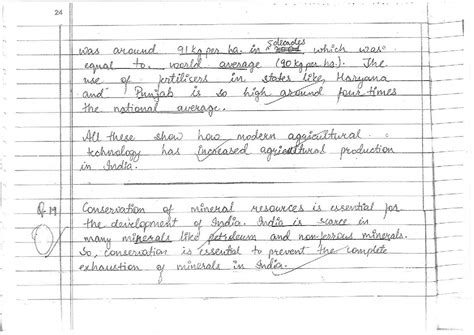 24
was around 91 kg per ha. in 5 decades which was
equal to world average (90 kg per ha.). The
use of fertilizers in states like Haryana
and Punjab is so high around four times
the national average.
All these show how modern agricultural
technology has increased agricultural production
in India.
Q.19 Conservation of mineral resources is essential for
the development of India. India is scarce in
many minerals like petroleum and non-ferrous minerals.
So, conservation is essential to prevent the complete
exhaustion of minerals in India.